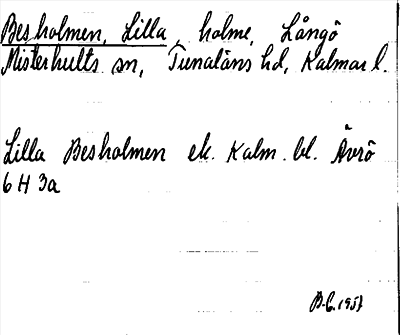 Besholmen, Lilla, holme, Långö
Misterhults sn, Tunaläns hd, Kalmar l.
Lilla Besholmen ek. Kalm. bl. Ävrö
6 H 3a
B.C. 1957